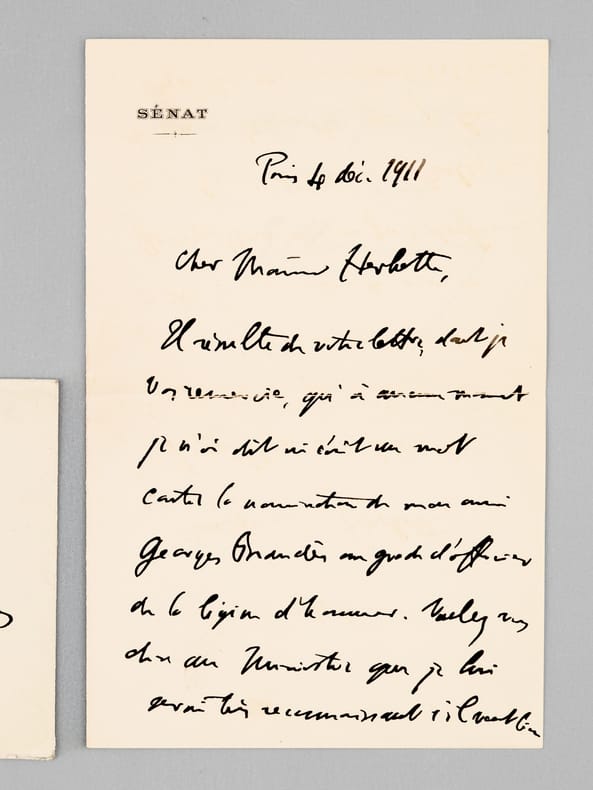 SÉNAT
Paris 4 déc. 1911
Cher Monsieur Herbette,
Il résulte de votre lettre, dont je
vous remercie, qu'à aucun moment
je n'ai dit ni écrit un mot
contre la nomination de mon ami
Georges Brandès au grade d'officier
de la légion d'honneur. Voulez vous
dire au Ministre que je lui
serai très reconnaissant s'il veut bien